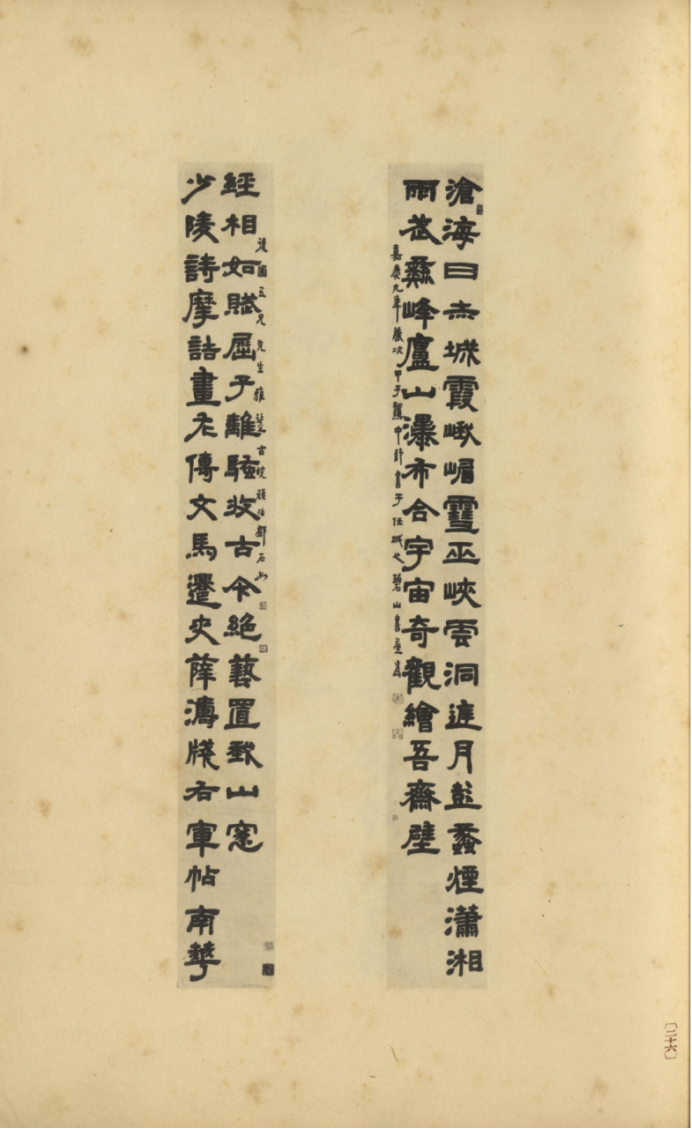 滄海日赤城霞峨嵋雪巫峽雲洞庭月彭蠡煙瀟湘
雨武彝峰廬山瀑布合宇宙奇觀繪吾齋壁
嘉慶九年歲次甲子中書于任城之碧山書屋
少陵詩摩詰畫左傳文馬遷史薛濤牋右軍帖南華
經相如賦屈子離騷收古今絕藝置我山窓
五兄先生雅古浣頑伯鄧石如
〔二十六〕